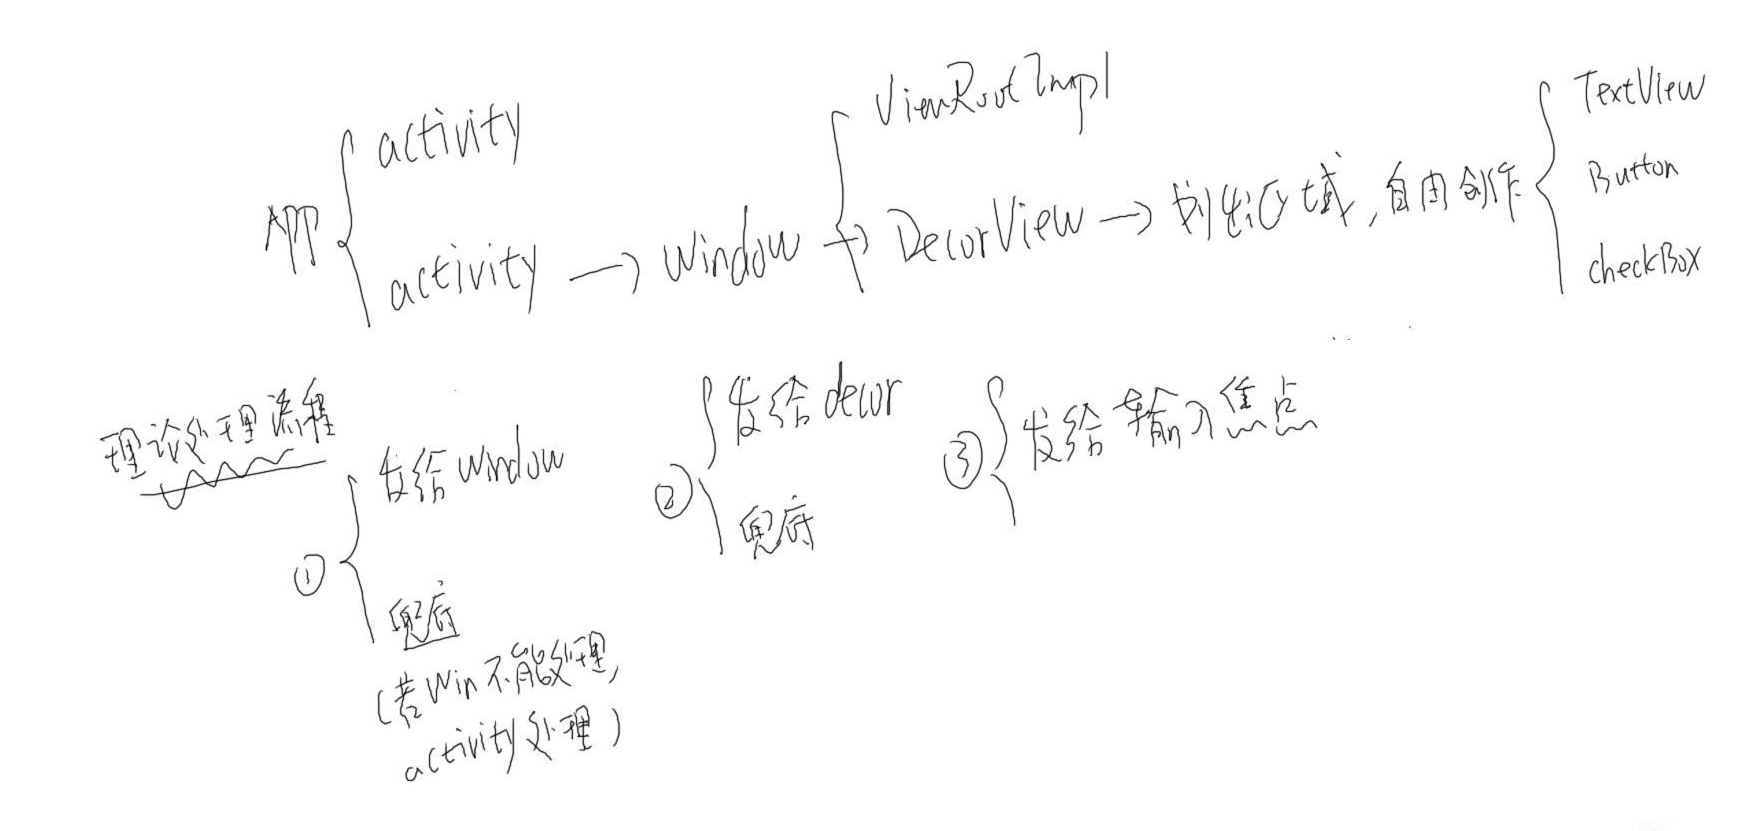 APP
activity
activity → window →
ViewRootImpl
DecorView → 划出区域,自由创作
TextView
Button
checkBox
理论处理流程
①
发给window
兜底
(若Win不能处理,
activity处理)
②
发给decor
兜底
③
发给输入焦点